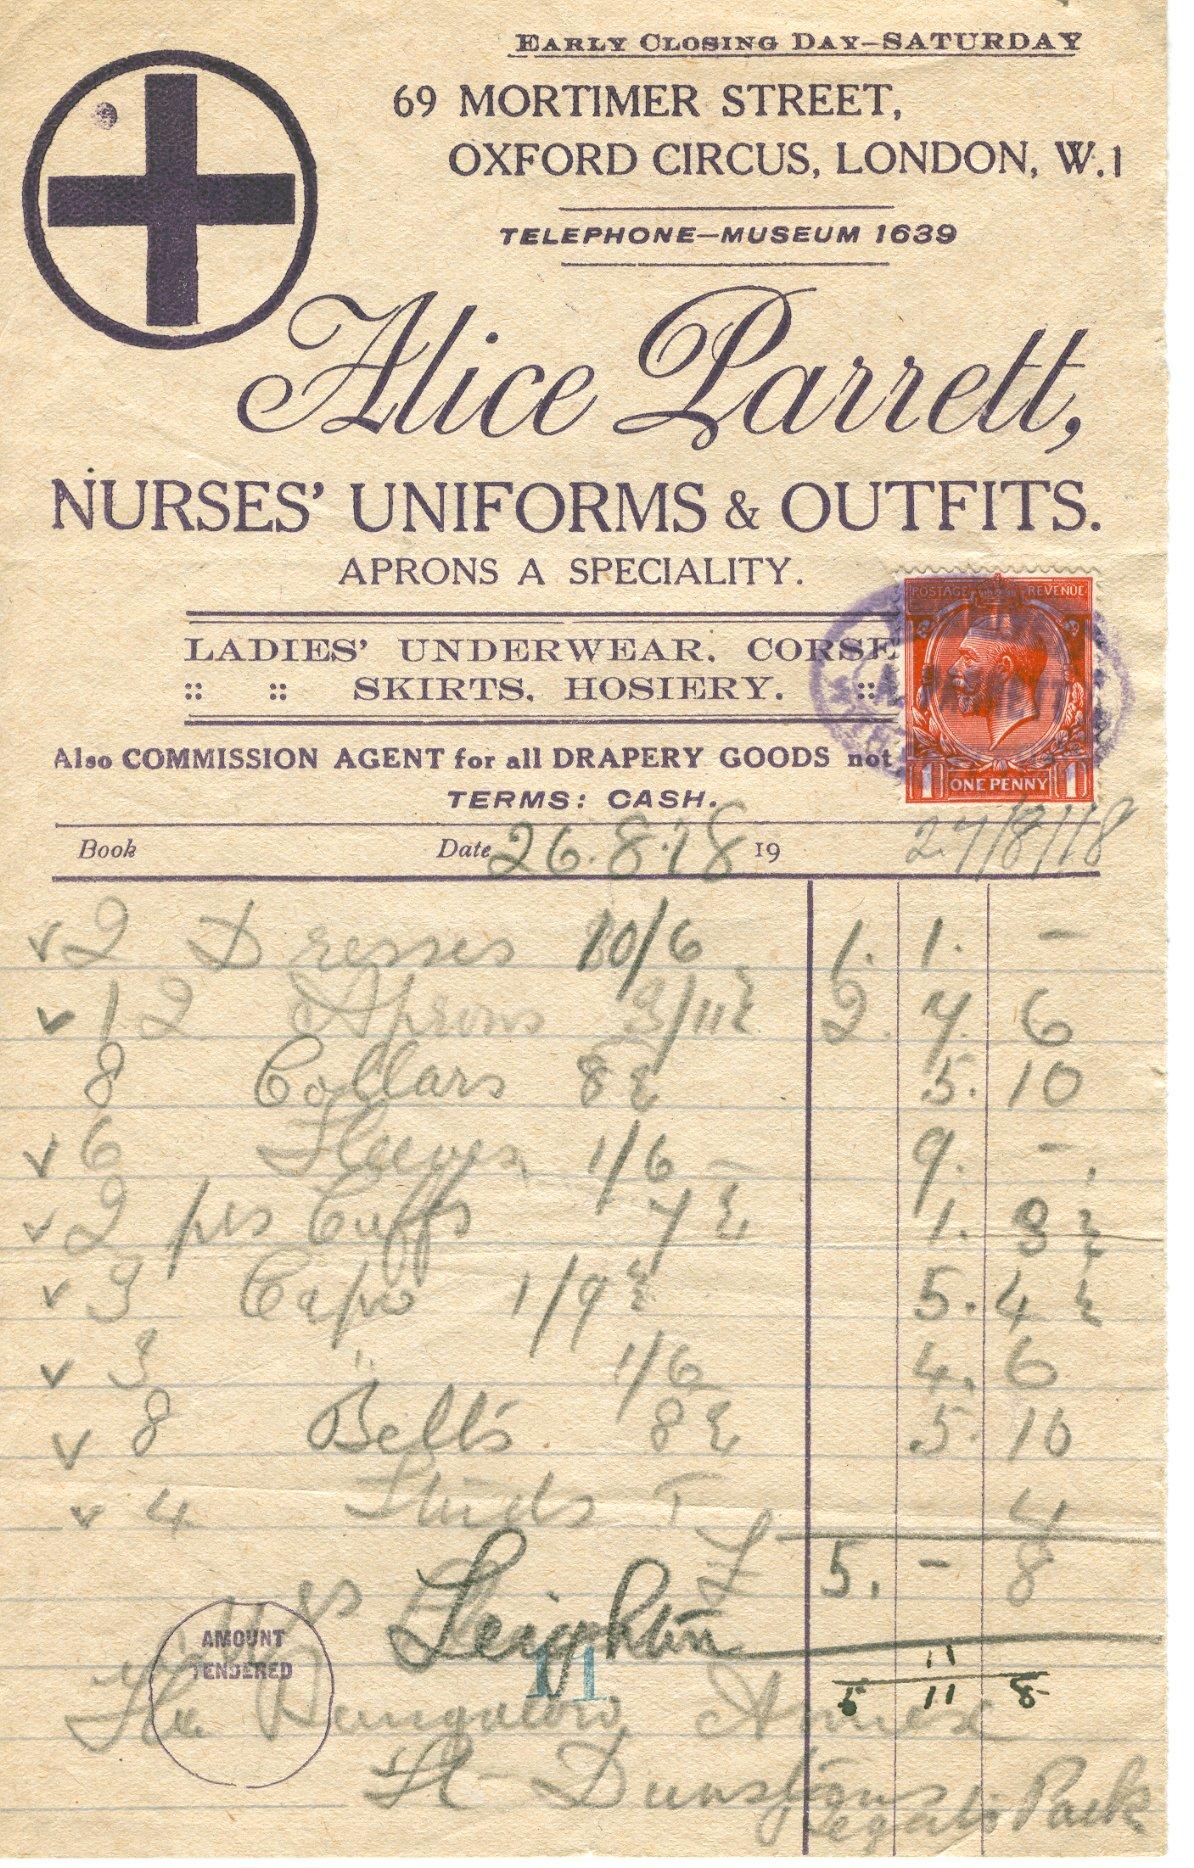 EARLY CLOSING DAY–SATURDAY
69 MORTIMER STREET,
OXFORD CIRCUS, LONDON, W.1
TELEPHONE–MUSEUM 1639
Alice Parrett,
NURSES' UNIFORMS & OUTFITS.
APRONS A SPECIALITY.
LADIES' UNDERWEAR. CORSE
:: :: SKIRTS. HOSIERY. ::
POSTAGE REVENUE
1 ONE PENNY 1
Also COMMISSION AGENT for all DRAPERY GOODS not
TERMS: CASH.
Book Date 26.8.18 19 27/8/18
✓ 2 Dresses 10/6 1. 1. -
✓ 12 Aprons 3/11½ 2. 7. 6
8 Collars 8½ 5. 10
✓ 6 Sleeves 1/6 9. -
✓ 2 prs Cuffs 7½ 1. 3 ½
✓ 3 Caps 1/9½ 5. 4 ½
✓ 3 " 1/6 4. 6
✓ 8 Belts 8½ 5. 10
✓ 4 Studs 1 4
£ 5. - 8
Leighton
AMOUNT
TENDERED
11
11
5 11 8
The Bungalow Annex
St Dunstans
Regents Park